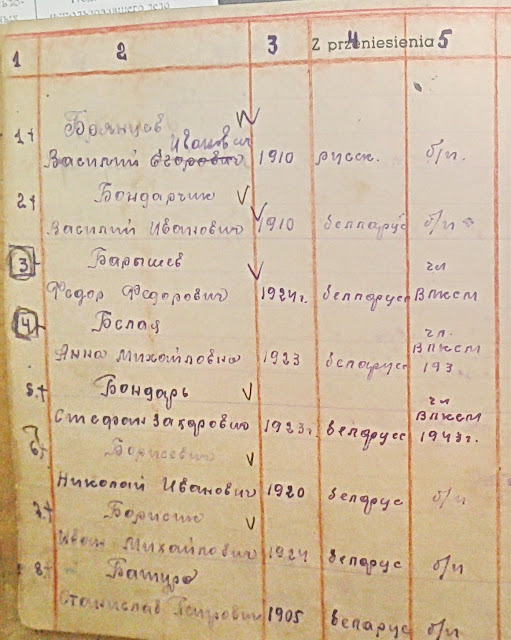 1 2 3 Z przeniesienia 4 5
Брянцев
Иванович
1+ Василий Егорович 1910 русск. б/п.
Бондарчик
2+ Василий Иванович 1910 белларус б/п
Барышев чл
3+ Федор Федорович 1924г. белларусс ВЛКСМ
Белая чл.
4+ ВЛКСМ
Анна Михайловна 1923 беларусс 193
5.+ Бондарь чл
ВЛКСМ
Стефан Захарович 1923г. беларусс 1943г.
6+ Борисевич
Николай Иванович 1920 беларус б/п
7.+ Борисик
Иван Михайлович 1924 беларус б/п
8+ Батура
Станислав Петрович 1905 беларус б/п